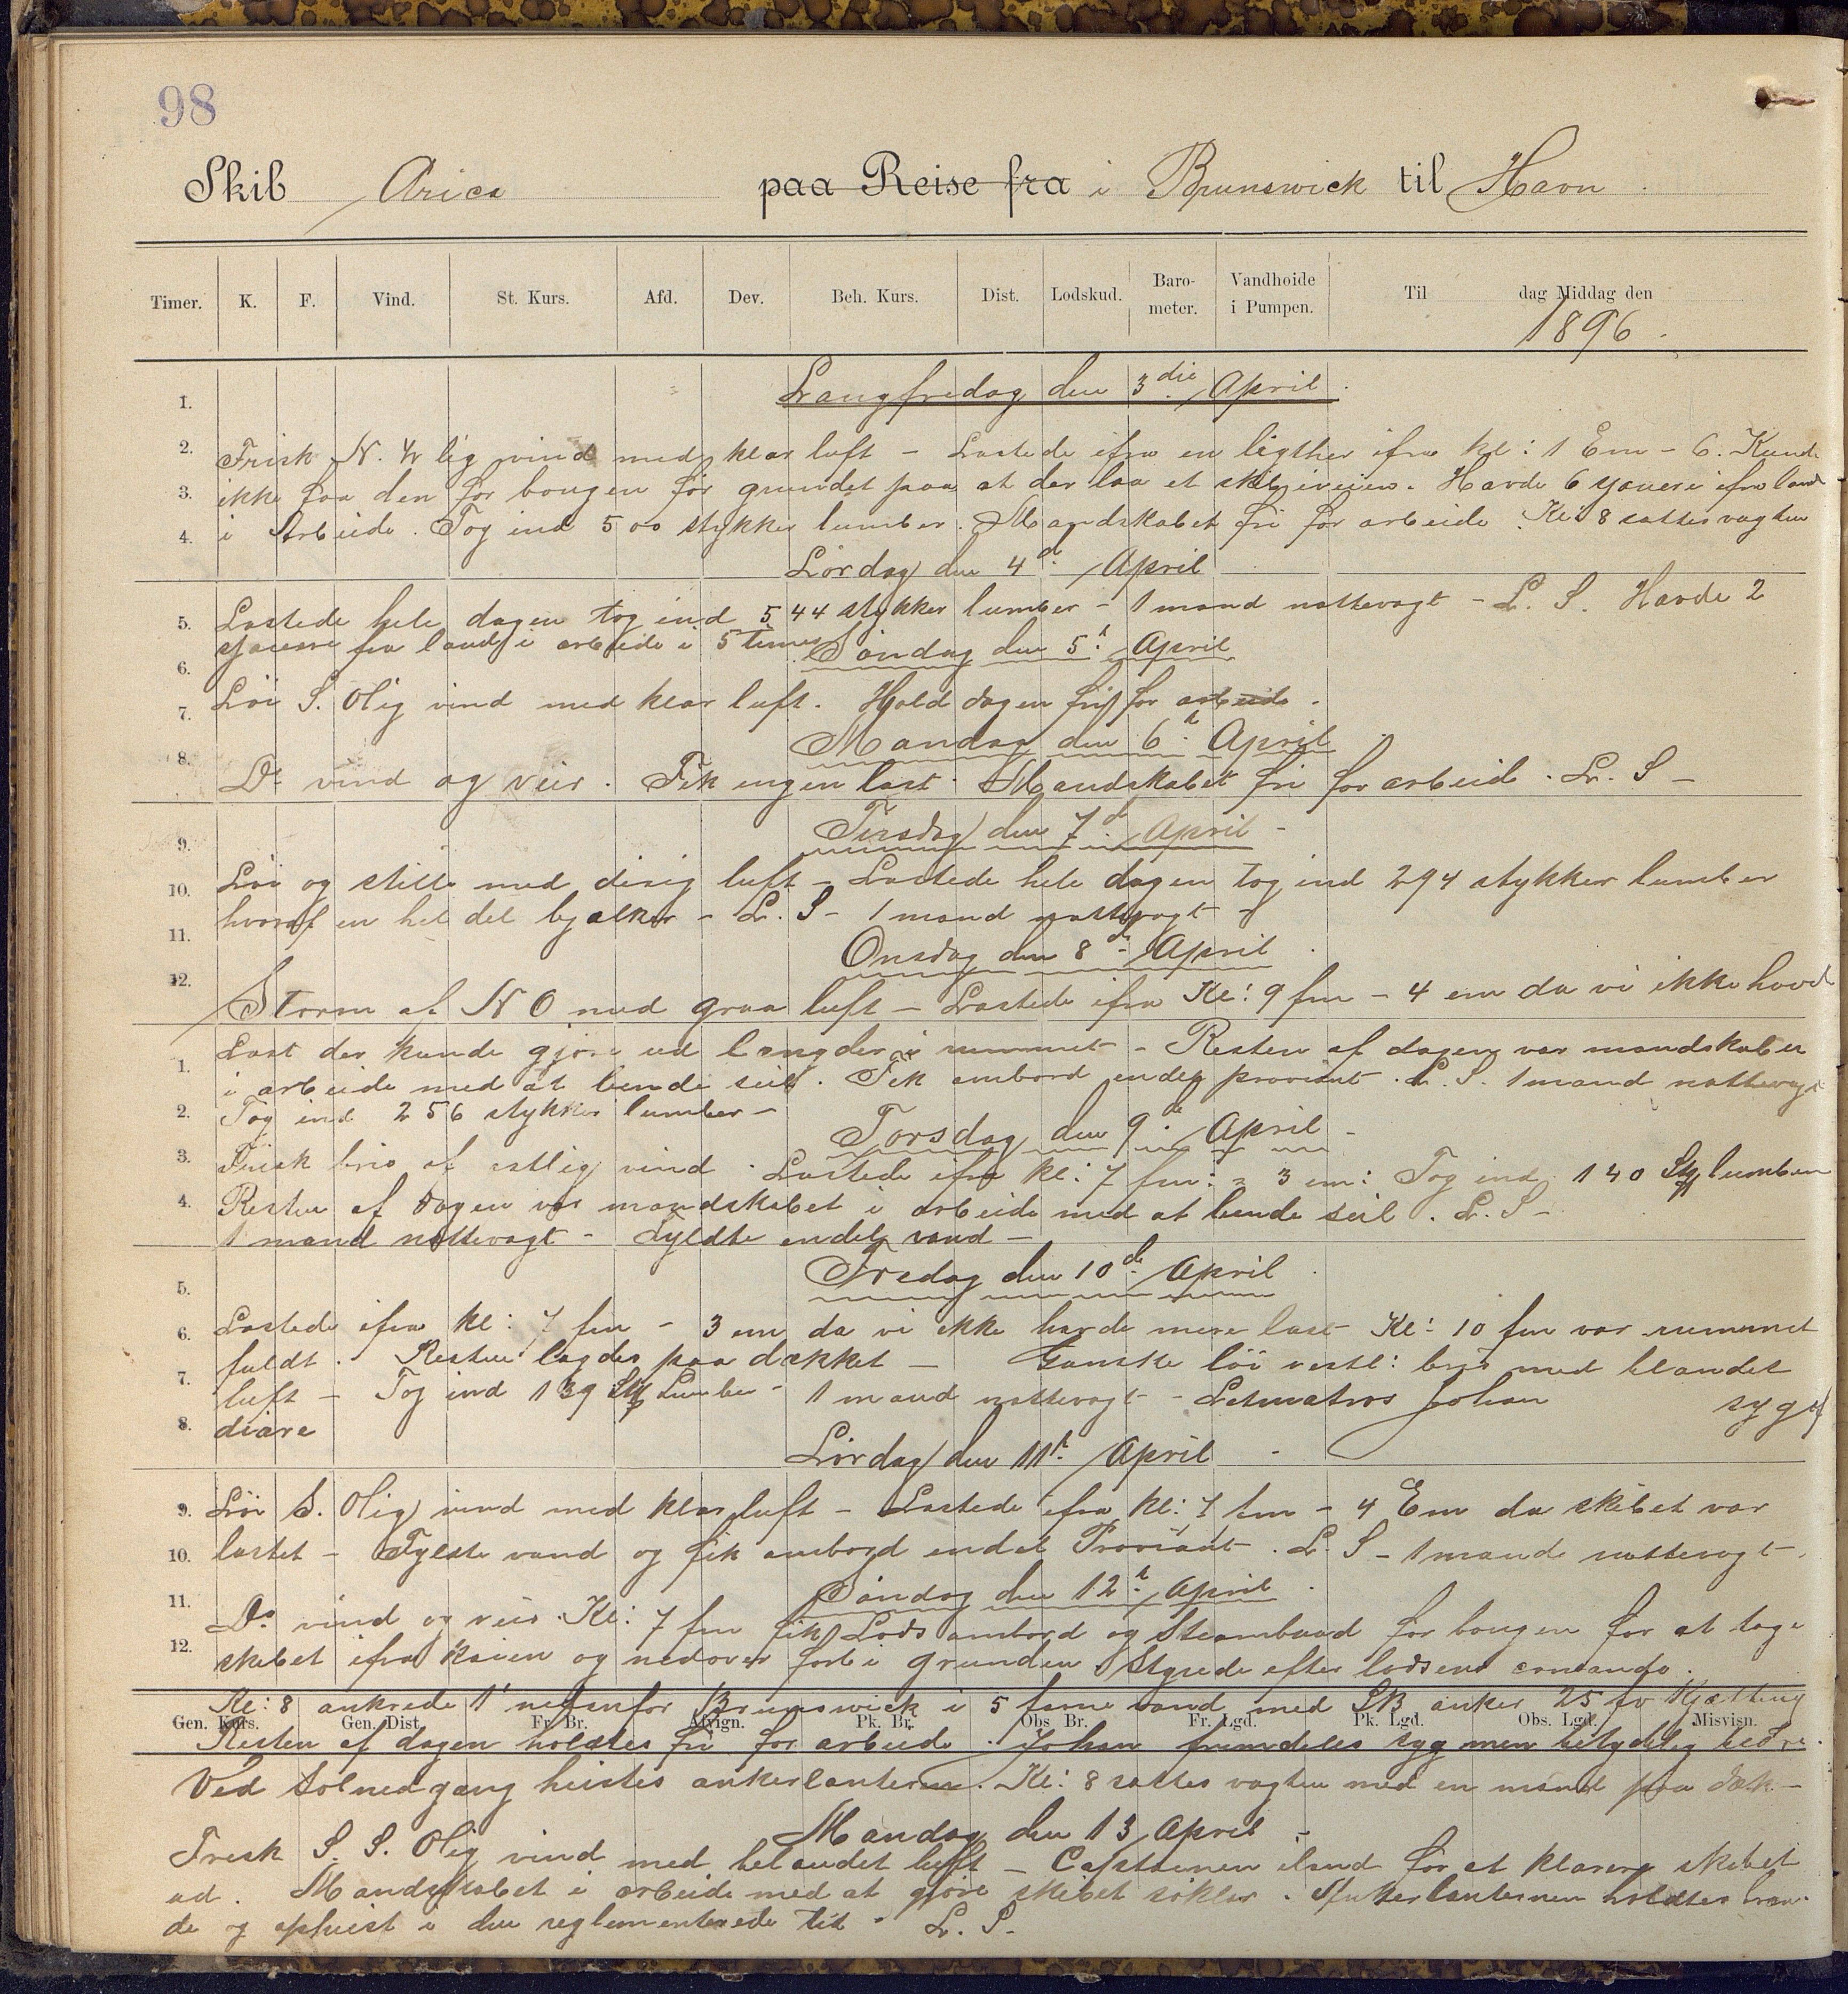 98
Skib Arica paa Reise fra i Brunswick til Havn
Timer. K. F. Vind. St. Kurs. Afd. Dev. Beh. Kurs. Dist. Lodskud. Baro-meter. Vandhoide i Pumpen. Til dag Middag den
1896
Langfredag den 3die April
1.
2. Frisk N. V lig vind med klar luft - Lastede ifra en ligther ifra kl: 1 Em - 6. Kunde
3. ikke faa den for bougen for grundet paa at der laa et skib iveien. Havde 6 ifra land
4. i Arbeide. Tog ind 500 stykker lumber. Mandskabet fri for arbeide. Kl: 8 sattes vagten
Lördag den 4d April
5. Lastede hele dagen tog ind 544 stykker lumber - 1 mand nattevagt - L. S. Havde 2
fra land i arbeide i 5 timer
6. Söndag den 5t April
7. Löi S. Olig vind med klar luft. Hold dagen fri for arbeide.
Mandag den 6t April
8. Do vind og veir. Fik ingen last. Mandskabet fri for arbeid. L. S -
Tirsdag den 7d April -
9.
10. Löi og stille med disig luft - Lastede hele dagen tog ind 294 stykker lumber
hvoraf en hel del bjælker - L. S - 1 mand nattevagt -
11. Onsdag den 8de April
12. Storm af N O med graa luft - Lastede ifra Kl: 9 fm - 4 em da vi ikke havde
Last der kunde gjöre ud længder i rummet - Resten af dagen var mandskabet
1. i arbeide med at bende seil. Fik ombord endel proviant. L. S. 1 mand nattevagt
2. Tog ind 256 stykker lumber -
Torsdag den 9de April -
3. Frisk bris af ostlig vind. Lastede ifra kl: 7 fm: - 3 em: Tog ind 140 Stk lumber
4. Resten af dagen var mandskabet i arbeide med at bende seil. L. S -
1 mand nattevagt - Fyldte endel vand -
Fredag den 10de April
5.
6. Lastede ifra kl: 7 fm - 3 em da vi ikke havde mere last Kl: 10 fm var rummet
fuldt. Resten lagdes paa dækket - Ganske löi vestl: bris med blandet
7. luft - Tog ind 139 Stk Lumber - 1 mand nattevagt - Letmatros Johan syg af
8. diare
Lördag den 11t April -
9. Löi S. Olig vind med klar luft - Lastede ifra kl: 7 fm - 4 Em da skibet var
10. lastet - Fyldte vand og fik ombord endel Proviant. L. S - 1 mand nattevagt.
Söndag den 12t April
11. Do vind og veir. Kl: 7 fm fik Lods ombord og Steambaad for bougen for at tage
12. skibet ifra kaien og nedover forbi grunden Styrede efter lodsens comando.
Kl: 8 ankrede 1' nedenfor Brunswick i 5 favne vand med SB anker 25 fv Kjætting
Gen. Kurs. Gen. Dist. Fr. Br. Afvign. Pk. Br. Obs Br. Fr. Lgd. Pk. Lgd. Obs. Lgd. Misvisn.
Resten af dagen holdtes fri for arbeide. Johan fremdeles syg men betydelig bedre.
Ved Solnedgang heistes ankerlantern. Kl: 8 sattes vagten med en mand paa dæk -
Mandag den 13 April -
Frisk S. S. Olig vind med blandet luft - Captainen iland for at klarere skibet
ud. Mandskabet i arbeide med at gjöre skibet söklar. Ankerlanternen holdtes bræn-
de og opheist i den reglementerede tid - L. S -